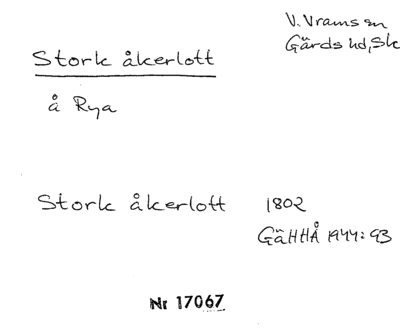 V. Vrams sn
Gärds hd, Sk
Stork åkerlott
å Rya
Stork åkerlott 1802
GäHHÅ 1944:93
Nr 17067